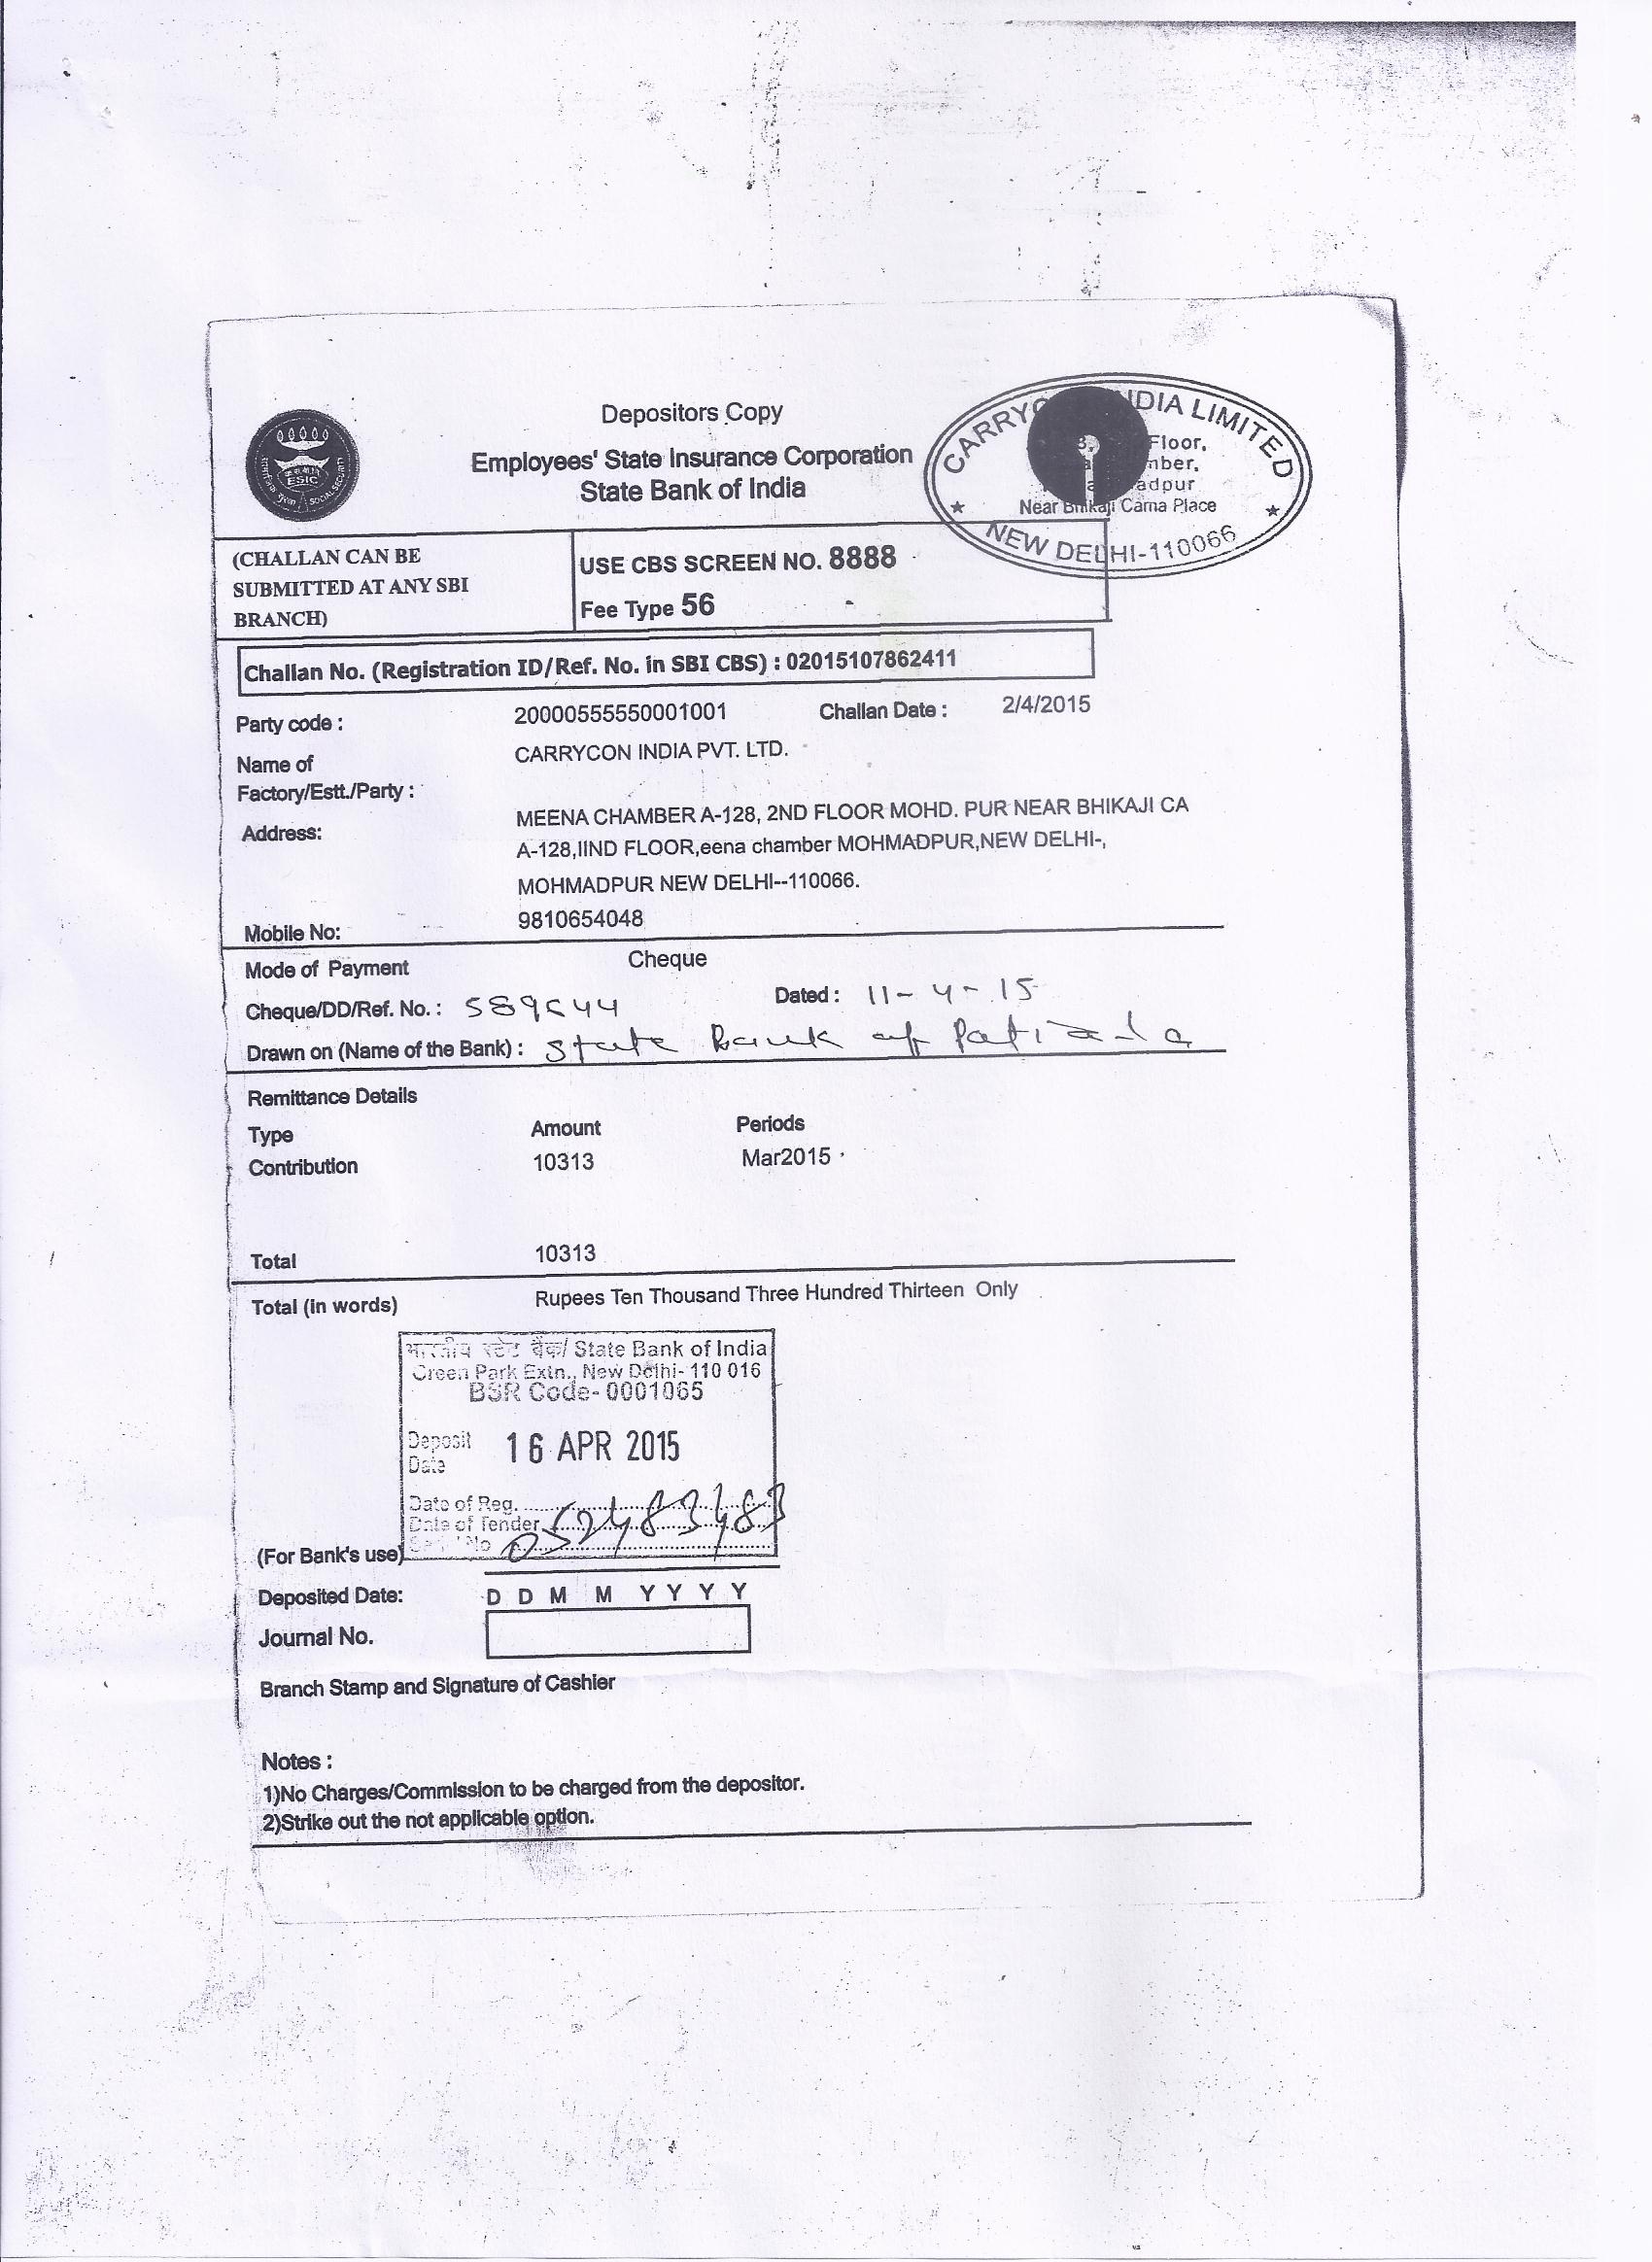 Depositors Copy
Employees' State Insurance Corporation
State Bank of India
ESIC
SOCIAL SECURITY
INDIA LIMITED
Floor,
Near Bhikaji Cama Place
NEW DELHI-110066
(CHALLAN CAN BE
SUBMITTED AT ANY SBI
BRANCH)
USE CBS SCREEN NO. 8888
Fee Type 56
Challan No. (Registration ID/Ref. No. in SBI CBS) : 02015107862411
Party code : 20000555550001001 Challan Date : 2/4/2015
Name of CARRYCON INDIA PVT. LTD.
Factory/Estt./Party :
Address: MEENA CHAMBER A-128, 2ND FLOOR MOHD. PUR NEAR BHIKAJI CA
A-128,IIND FLOOR,eena chamber MOHMADPUR,NEW DELHI-,
MOHMADPUR NEW DELHI--110066.
Mobile No: 9810654048
Mode of Payment Cheque
Cheque/DD/Ref. No. : Dated : 11-4-15
Drawn on (Name of the Bank) : State Bank of Patiala
Remittance Details
Type Amount Periods
Contribution 10313 Mar2015
Total 10313
Total (in words) Rupees Ten Thousand Three Hundred Thirteen Only
भारतीय स्टेट बैंक/ State Bank of India
Green Park Extn., New Delhi- 110 016
BSR Code- 0001065
Deposit
Date
16 APR 2015
Date of Reg.
Date of Tender
(For Bank's use)
Deposited Date: D D M M Y Y Y Y
Journal No.
Branch Stamp and Signature of Cashier
Notes :
1)No Charges/Commission to be charged from the depositor.
2)Strike out the not applicable option.